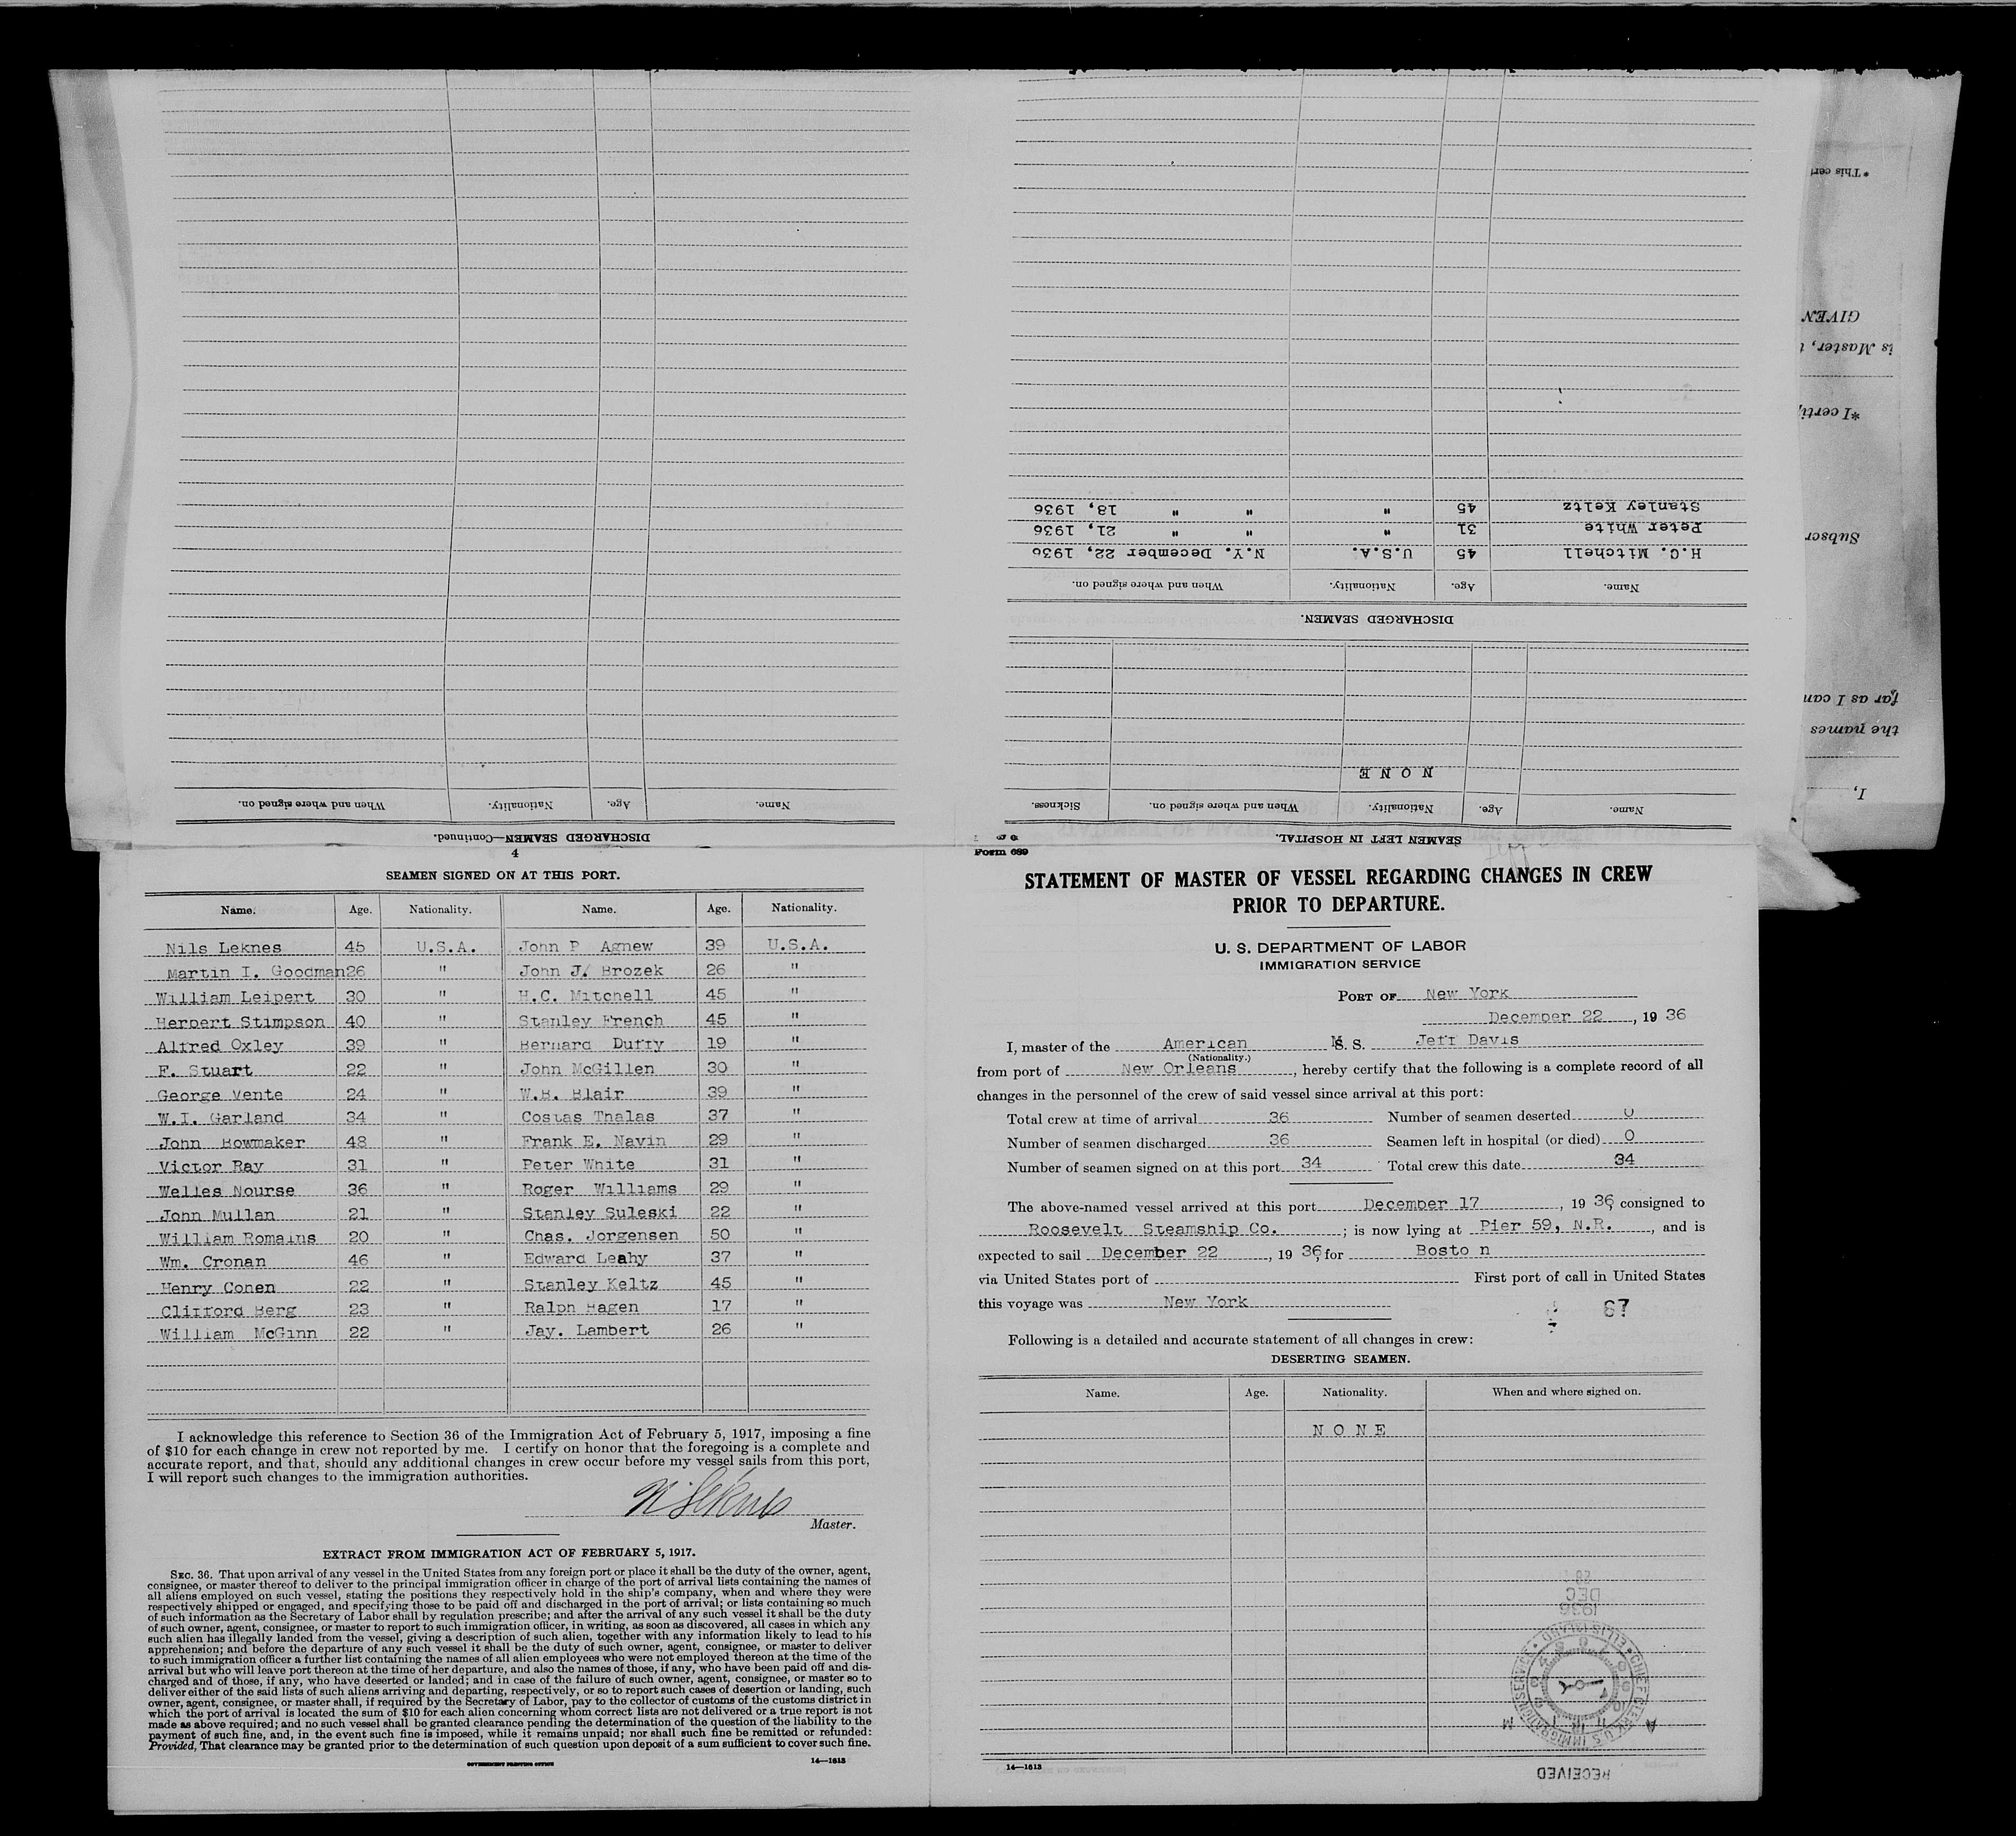 DISCHARGED SEAMEN—Continued.
Name. Age. Nationality. When and where signed on.
SEAMEN LEFT IN HOSPITAL.
Name. Age. Nationality. When and where signed on. Sickness.
N O N E
DISCHARGED SEAMEN.
Name. Age. Nationality. When and where signed on.
H.C. Mitchell 45 U.S.A. N.Y. December 22, 1936
Peter White 31 " " " 21, 1936
Stanley Keltz 45 " " " 18, 1936
I,
the names
far as I can
Subscr
*I certify
is Master,
GIVEN
*This cert
4
SEAMEN SIGNED ON AT THIS PORT.
Name. Age. Nationality. Name. Age. Nationality.
Nils Leknes 45 U.S.A. John P Agnew 39 U.S.A.
Martin I. Goodman 26 " John J. Brozek 26 "
William Leipert 30 " H.C. Mitchell 45 "
Herbert Stimpson 40 " Stanley French 45 "
Alfred Oxley 39 " Bernard Duffy 19 "
F. Stuart 22 " John McGillen 30 "
George Vente 24 " W.B. Blair 39 "
W.I. Garland 34 " Costas Thalas 37 "
John Bowmaker 48 " Frank E. Navin 29 "
Victor Ray 31 " Peter White 31 "
Welles Nourse 36 " Roger Williams 29 "
John Mullan 21 " Stanley Suleski 22 "
William Romains 20 " Chas. Jorgensen 50 "
Wm. Cronan 46 " Edward Leahy 37 "
Henry Conen 22 " Stanley Keltz 45 "
Clifford Berg 23 " Ralph Hagen 17 "
William McGinn 22 " Jay. Lambert 26 "
I acknowledge this reference to Section 36 of the Immigration Act of February 5, 1917, imposing a fine
of $10 for each change in crew not reported by me. I certify on honor that the foregoing is a complete and
accurate report, and that, should any additional changes in crew occur before my vessel sails from this port,
I will report such changes to the immigration authorities.
N Leknes
Master.
EXTRACT FROM IMMIGRATION ACT OF FEBRUARY 5, 1917.
SEC. 36. That upon arrival of any vessel in the United States from any foreign port or place it shall be the duty of the owner, agent,
consignee, or master thereof to deliver to the principal immigration officer in charge of the port of arrival lists containing the names of
all aliens employed on such vessel, stating the positions they respectively hold in the ship's company, when and where they were
respectively shipped or engaged, and specifying those to be paid off and discharged in the port of arrival; or lists containing so much
of such information as the Secretary of Labor shall by regulation prescribe; and after the arrival of any such vessel it shall be the duty
of such owner, agent, consignee, or master to report to such immigration officer, in writing, as soon as discovered, all cases in which any
such alien has illegally landed from the vessel, giving a description of such alien, together with any information likely to lead to his
apprehension; and before the departure of any such vessel it shall be the duty of such owner, agent, consignee, or master to deliver
to such immigration officer a further list containing the names of all alien employees who were not employed thereon at the time of the
arrival but who will leave port thereon at the time of her departure, and also the names of those, if any, who have been paid off and dis-
charged and of those, if any, who have deserted or landed; and in case of the failure of such owner, agent, consignee, or master so to
deliver either of the said lists of such aliens arriving and departing, respectively, or so to report such cases of desertion or landing, such
owner, agent, consignee, or master shall, if required by the Secretary of Labor, pay to the collector of customs of the customs district in
which the port of arrival is located the sum of $10 for each alien concerning whom correct lists are not delivered or a true report is not
made as above required; and no such vessel shall be granted clearance pending the determination of the question of the liability to the
payment of such fine, and, in the event such fine is imposed, while it remains unpaid; nor shall such fine be remitted or refunded:
Provided, That clearance may be granted prior to the determination of such question upon deposit of a sum sufficient to cover such fine.
GOVERNMENT PRINTING OFFICE 14—1613
Form 689
STATEMENT OF MASTER OF VESSEL REGARDING CHANGES IN CREW
PRIOR TO DEPARTURE.
U. S. DEPARTMENT OF LABOR
IMMIGRATION SERVICE
PORT OF New York
December 22, 1936
I, master of the American M. S. Jeff Davis
(Nationality.)
from port of New Orleans, hereby certify that the following is a complete record of all
changes in the personnel of the crew of said vessel since arrival at this port:
Total crew at time of arrival 36 Number of seamen deserted 0
Number of seamen discharged 36 Seamen left in hospital (or died) 0
Number of seamen signed on at this port 34 Total crew this date 34
The above-named vessel arrived at this port December 17, 1936 consigned to
Roosevelt Steamship Co. ; is now lying at Pier 59, N.R., and is
expected to sail December 22, 1936, for Bosto n
via United States port of First port of call in United States
this voyage was New York
67
Following is a detailed and accurate statement of all changes in crew:
DESERTING SEAMEN.
Name. Age. Nationality. When and where signed on.
N O N E
14—1613
RECEIVED
CHIEF CLERK U.S. IMMIGRATION SERVICE • ELLIS ISLAND •
A M
1936
DEC